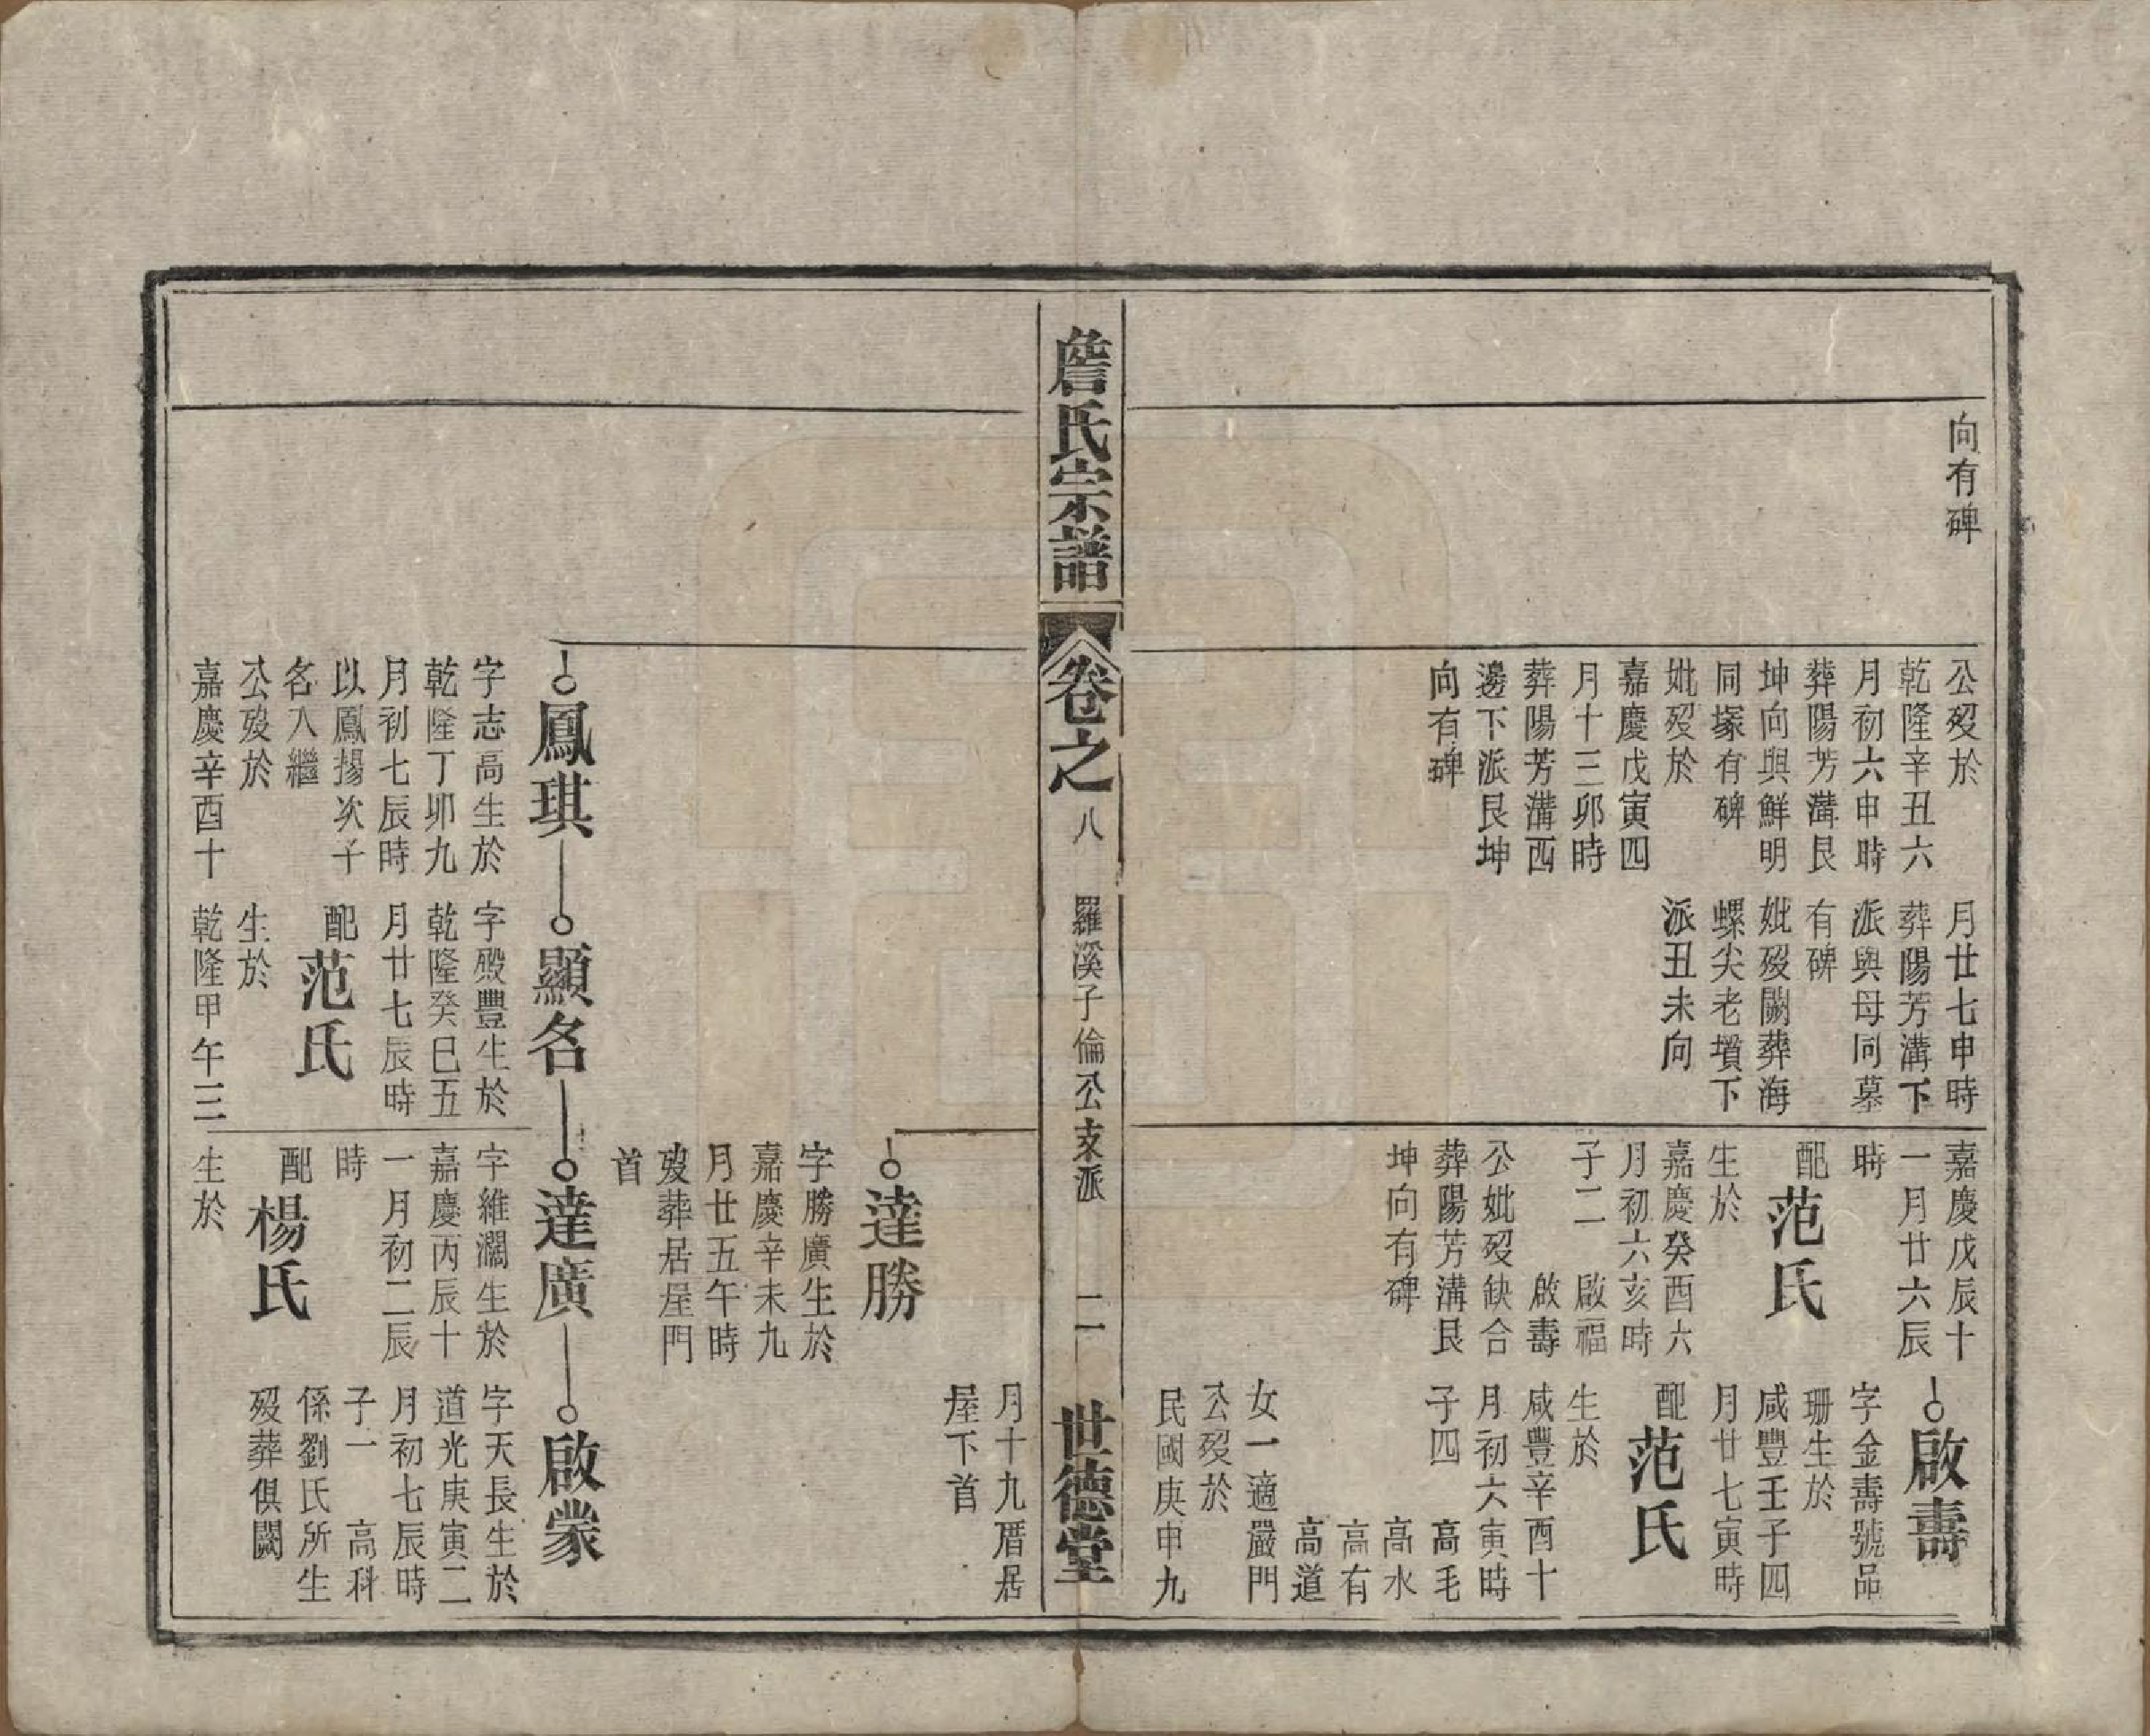 向有碑
公歿於
乾隆辛丑六
月初六申時
葬陽芳溝艮
坤向與鮮明
同塚有碑
妣歿於
嘉慶戊寅四
月十三卯時
葬陽芳溝西
邊下派艮坤
向有碑
月廿七申時
葬陽芳溝下
派與母同墓
有碑
妣歿闕葬海
螺尖老墳下
派丑未向
嘉慶戊辰十
一月廿六辰
時
配范氏
生於
嘉慶癸酉六
月初六亥時
子二 啟福
啟壽
公妣歿缺合
葬陽芳溝艮
坤向有碑
啟壽
字金壽號品
珊生於
咸豐壬子四
月廿七寅時
配范氏
生於
咸豐辛酉十
月初六寅時
子四 高毛
高水
高有
高道
女一適嚴門
公歿於
民國庚申九
詹氏宗譜
卷之八
羅溪子倫公支派
二
世德堂
月十九厝居
屋下首
達勝
字勝廣生於
嘉慶辛未九
月廿五午時
歿葬居屋門
首
鳳琪
字志高生於
乾隆丁卯九
月初七辰時
以鳳揚次子
名入繼
公歿於
嘉慶辛酉十
顯名
字殿豐生於
乾隆癸巳五
月廿七辰時
配范氏
生於
乾隆甲午三
達廣
字維瀾生於
嘉慶丙辰十
一月初二辰
時
配楊氏
生於
啟蒙
字天長生於
道光庚寅二
月初七辰時
子一 高科
係劉氏所生
歿葬俱闕